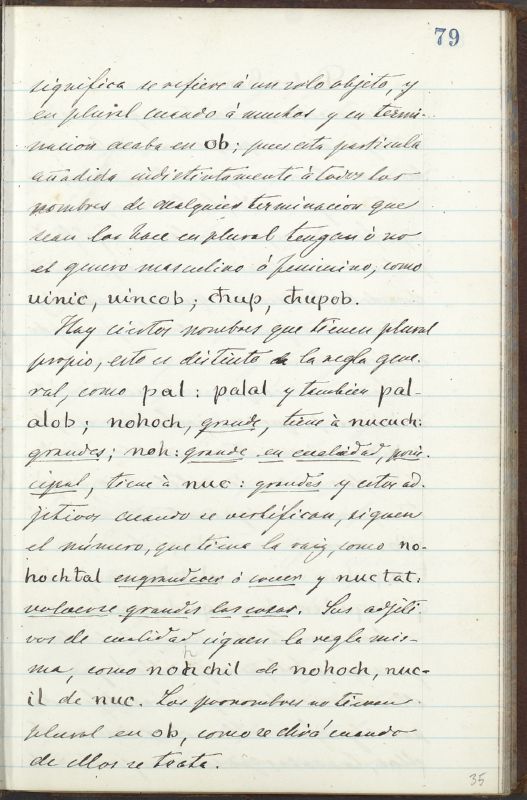 79
significa se refiere á un solo objeto, y
en plural cuando á muchos y su termi-
nacion acaba en ob; pues esta particula
añadida indistintamente á todos los
nombres de cualquier terminacion que
sean los hace en plural tengan ó no
el genero masculino ó femenino, como
uinic, uincob; chup, chupob.
Hay ciertos nombres que tienen plural
propio, esto es distinto de la regla gene-
ral, como pal: palal y tambien pal-
alob; nohoch, grande, tiene á nucuch:
grandes; noh: grande en cualidad, prin-
cipal, tiene á nuc: grandes y estos ad-
jetivos cuando se verbifican, siguen
el número, que tiene la raiz, como no-
hochtal engrandecer ó crecer y nuctal:
volverse grandes las cosas. Los adjeti-
vos de cualidad siguen la regla mis-
ma, como nohchil de nohoch, nuc-
il de nuc. Los pronombres no tienen
plural en ob, como se dirá cuando
de ellos se trata.
35